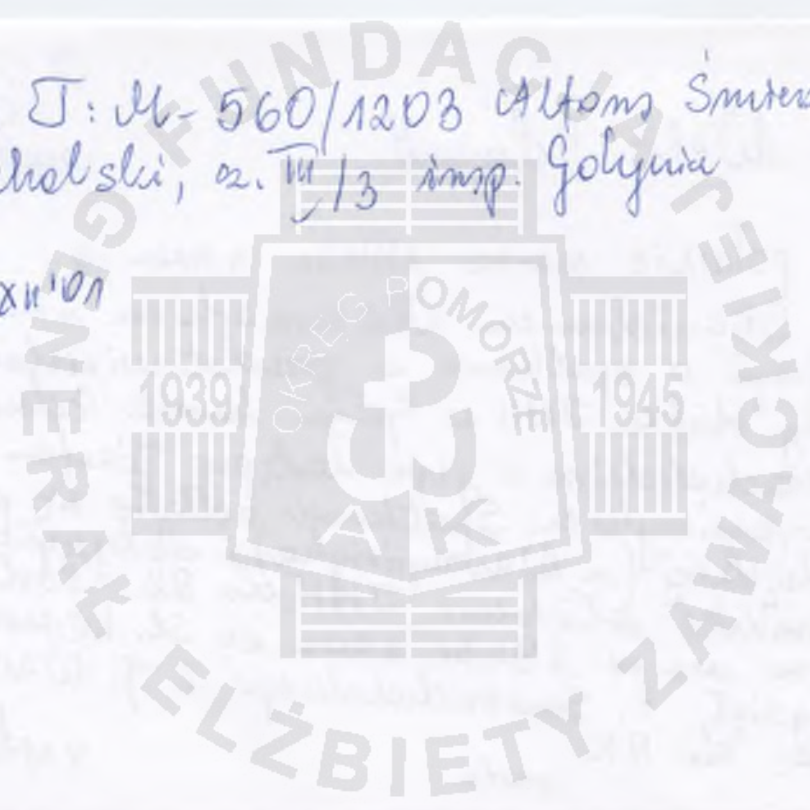 T: M-560/1203 Alfons Śmier
halski, cz. III/3 insp. Gdynia
XII '01
FUNDACJA GENERAŁ ELŻBIETY ZAWACKIEJ
OKRĘG POMORZE
1939
1945
AK